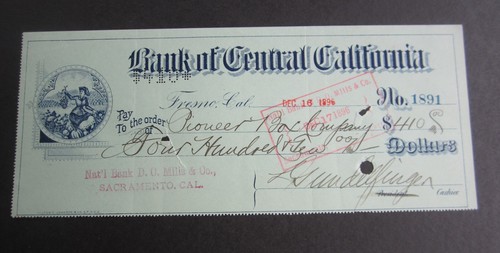 Bank of Central California
Fresno, Cal. DEC 16 1896 No. 1891
Pay To the order of Pioneer Box Company $410
Four Hundred & Ten Dollars
Nat'l Bank D. O. Mills & Co.,
SACRAMENTO, CAL.
L Gundelfinger
Cashier